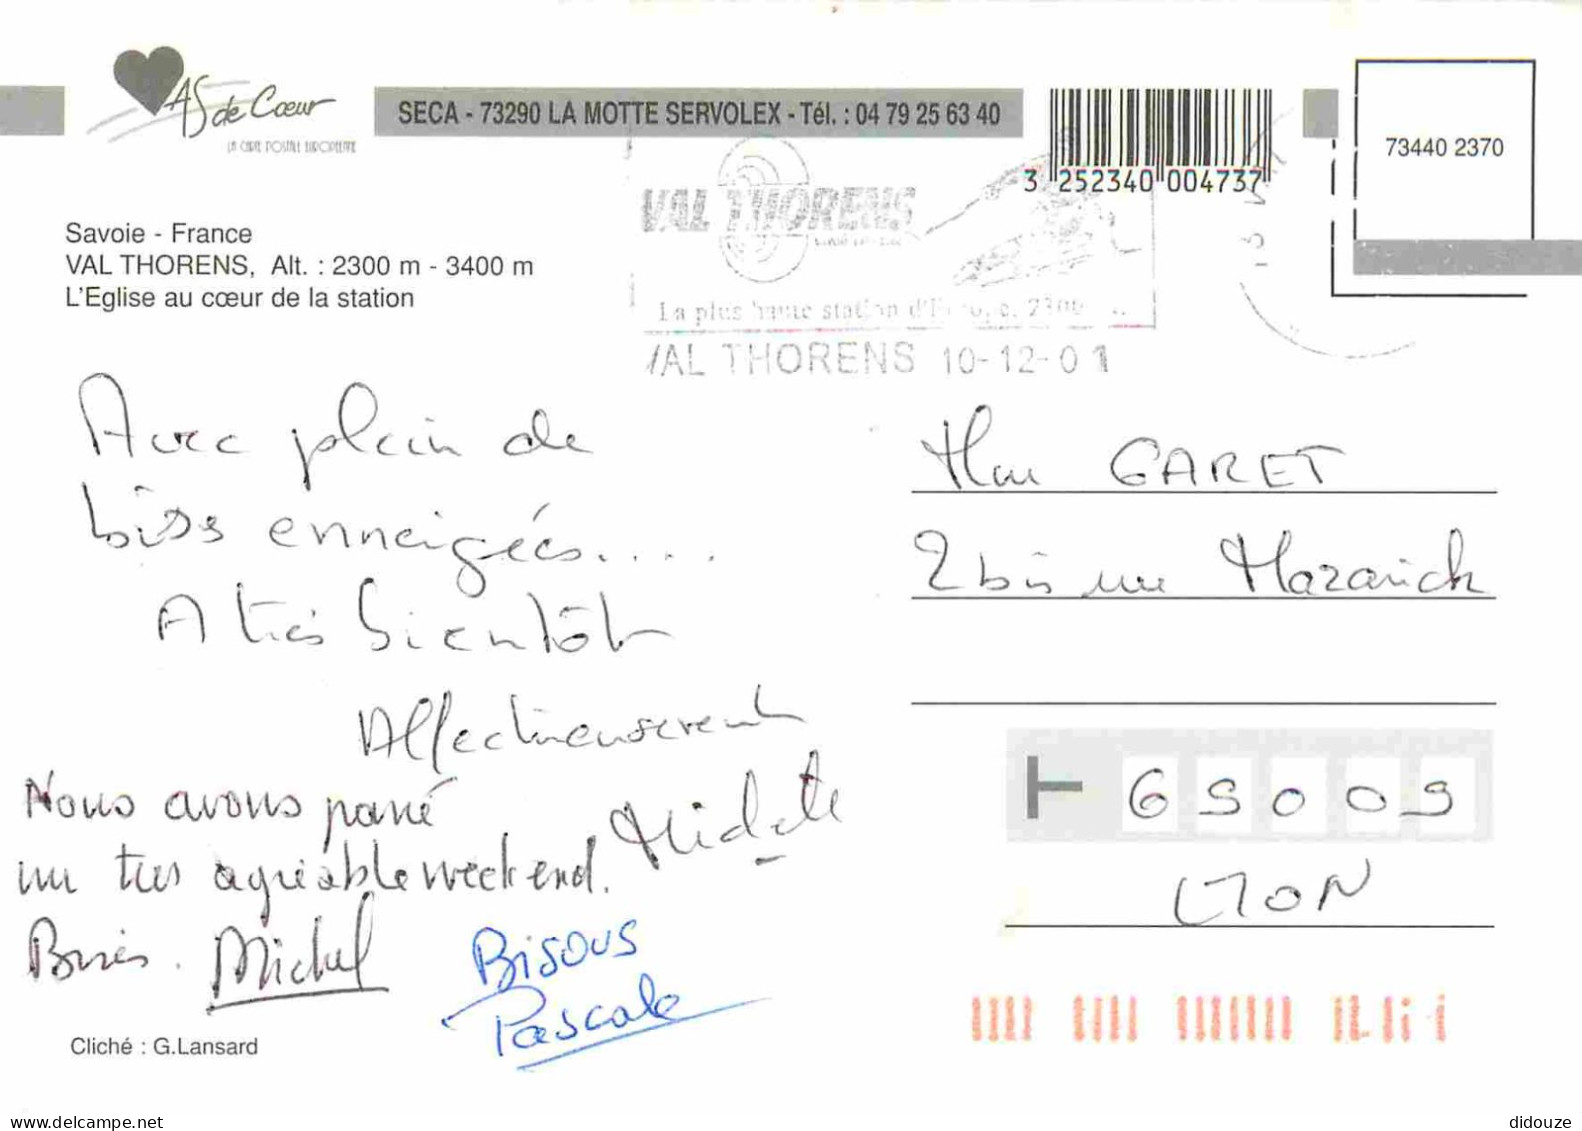 AS de Cœur
LA CARTE POSTALE EUROPEENNE
SECA - 73290 LA MOTTE SERVOLEX - Tél. : 04 79 25 63 40
3 252340 004737
73440 2370
Savoie - France
VAL THORENS, Alt. : 2300 m - 3400 m
L'Eglise au cœur de la station
VAL THORENS
La plus haute station d'Europe, 2300
VAL THORENS 10-12-01
Avec plein de
biss enneigées....
A très bientôt
Affectueusement
Nous avons passé
un très agréable week end.
Bises. Michel
Bisous
Pascale
Mme GARET
2 bis rue Mazarick
69009
LYON
Cliché : G.Lansard
www.delcampe.net
didouze